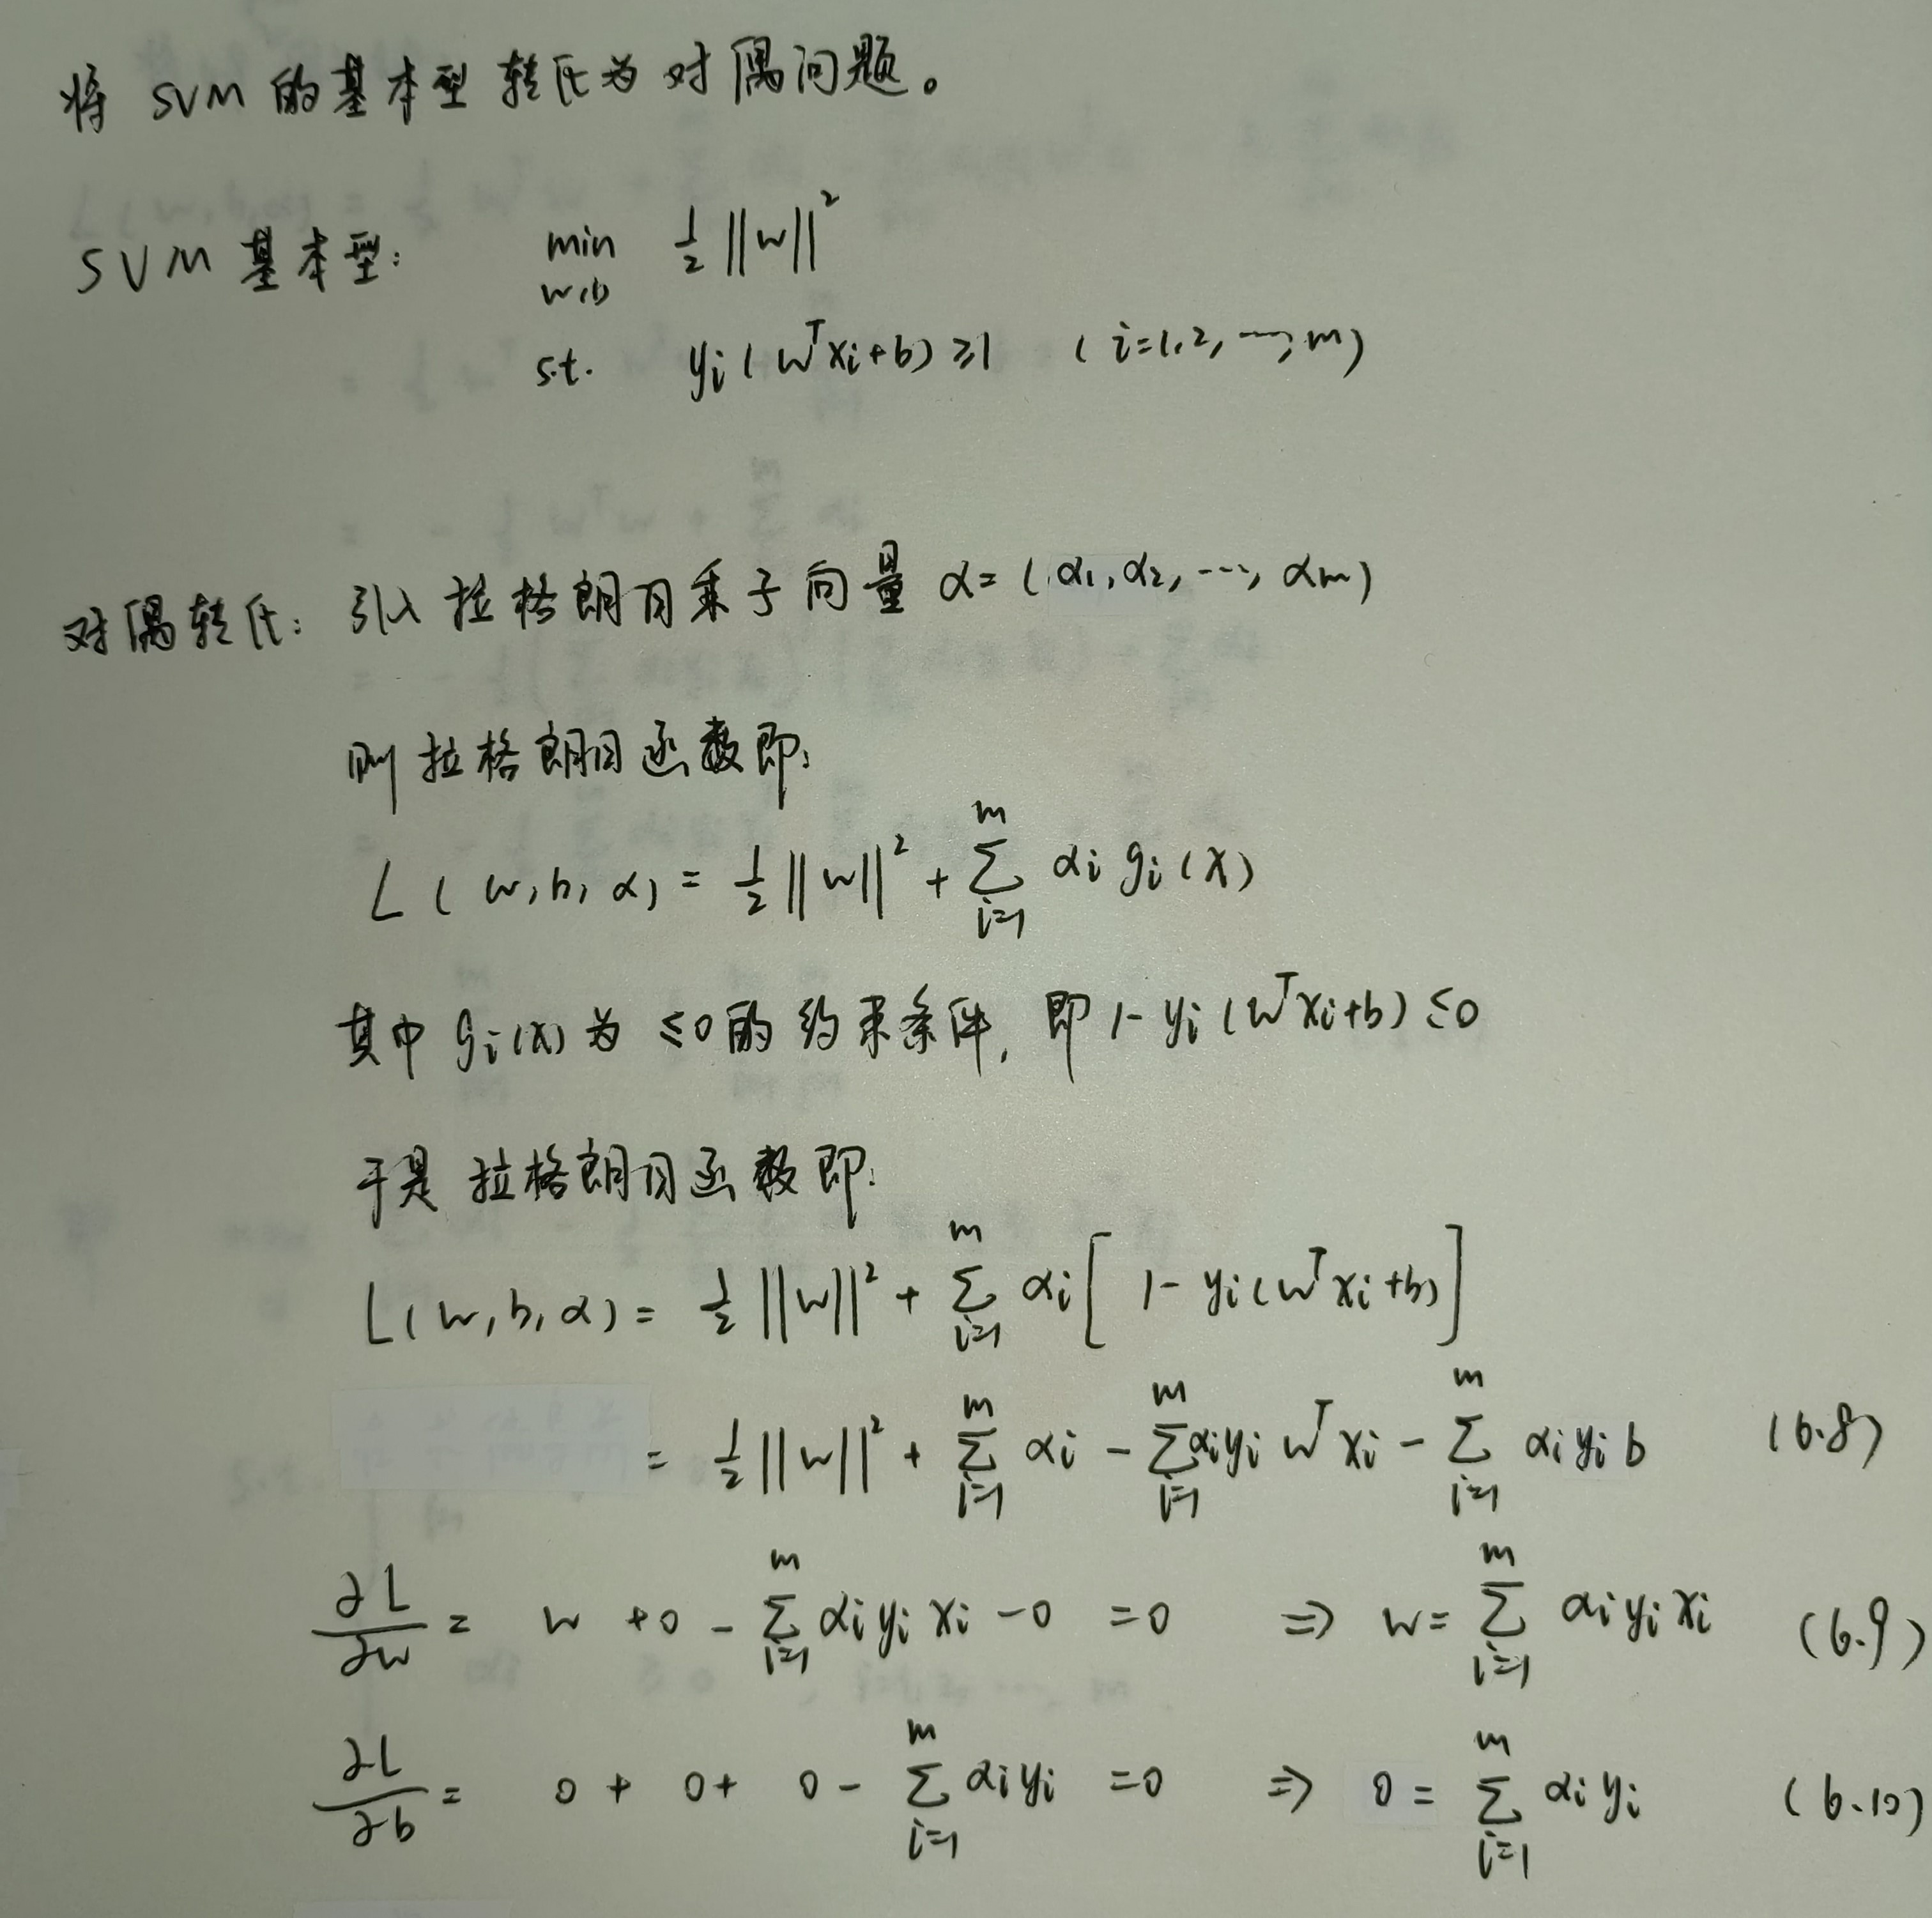 将 SVM 的基本型转化为对偶问题。
SVM 基本型: min 1/2 ||w||²
w,b
s.t. yi(wᵀxi+b)≥1 (i=1,2,…,m)
对偶转化: 引入拉格朗日乘子向量 α=(α1,α2,…,αm)
则拉格朗日函数即:
L(w,b,α) = 1/2 ||w||² + ∑_{i=1}^{m} αi gi(x)
其中 gi(x) 为 ≤0 的约束条件, 即 1-yi(wᵀxi+b)≤0
于是拉格朗日函数即:
L(w,b,α) = 1/2 ||w||² + ∑_{i=1}^{m} αi[1-yi(wᵀxi+b)]
= 1/2 ||w||² + ∑_{i=1}^{m} αi - ∑_{i=1}^{m} αiyi wᵀxi - ∑_{i=1}^{m} αiyib (6.8)
∂L/∂w = w +0 - ∑_{i=1}^{m} αiyixi -0 =0 ⇒ w= ∑_{i=1}^{m} αiyixi (6.9)
∂L/∂b = 0 + 0 + 0 - ∑_{i=1}^{m} αiyi =0 ⇒ 0 = ∑_{i=1}^{m} αiyi (6.10)